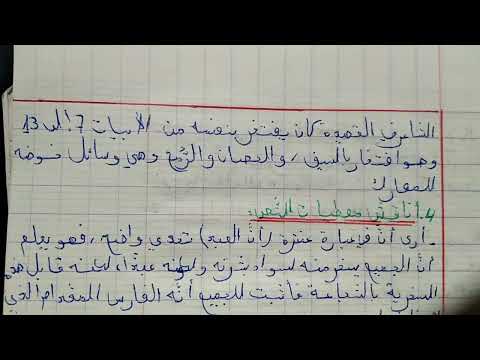 الشاعر في القصيدة كان يفتخر بنفسه من الأبيات 7 إلى 13
وهو افتخار بالسيف، والحصان والرمح وهي وسائل خوضه
للمعارك
4. أناقش معطيات النص:
- أرى أن في عبارة عنترة (أنا العبد) تحدي واضح، فهو يعلم
أن الجميع يسخر منه لسواد بشرته ولكونه عبدا، لكنه قابل هذه
السخرية بالشجاعة فأثبت للجميع أنه الفارس المقدام الذي